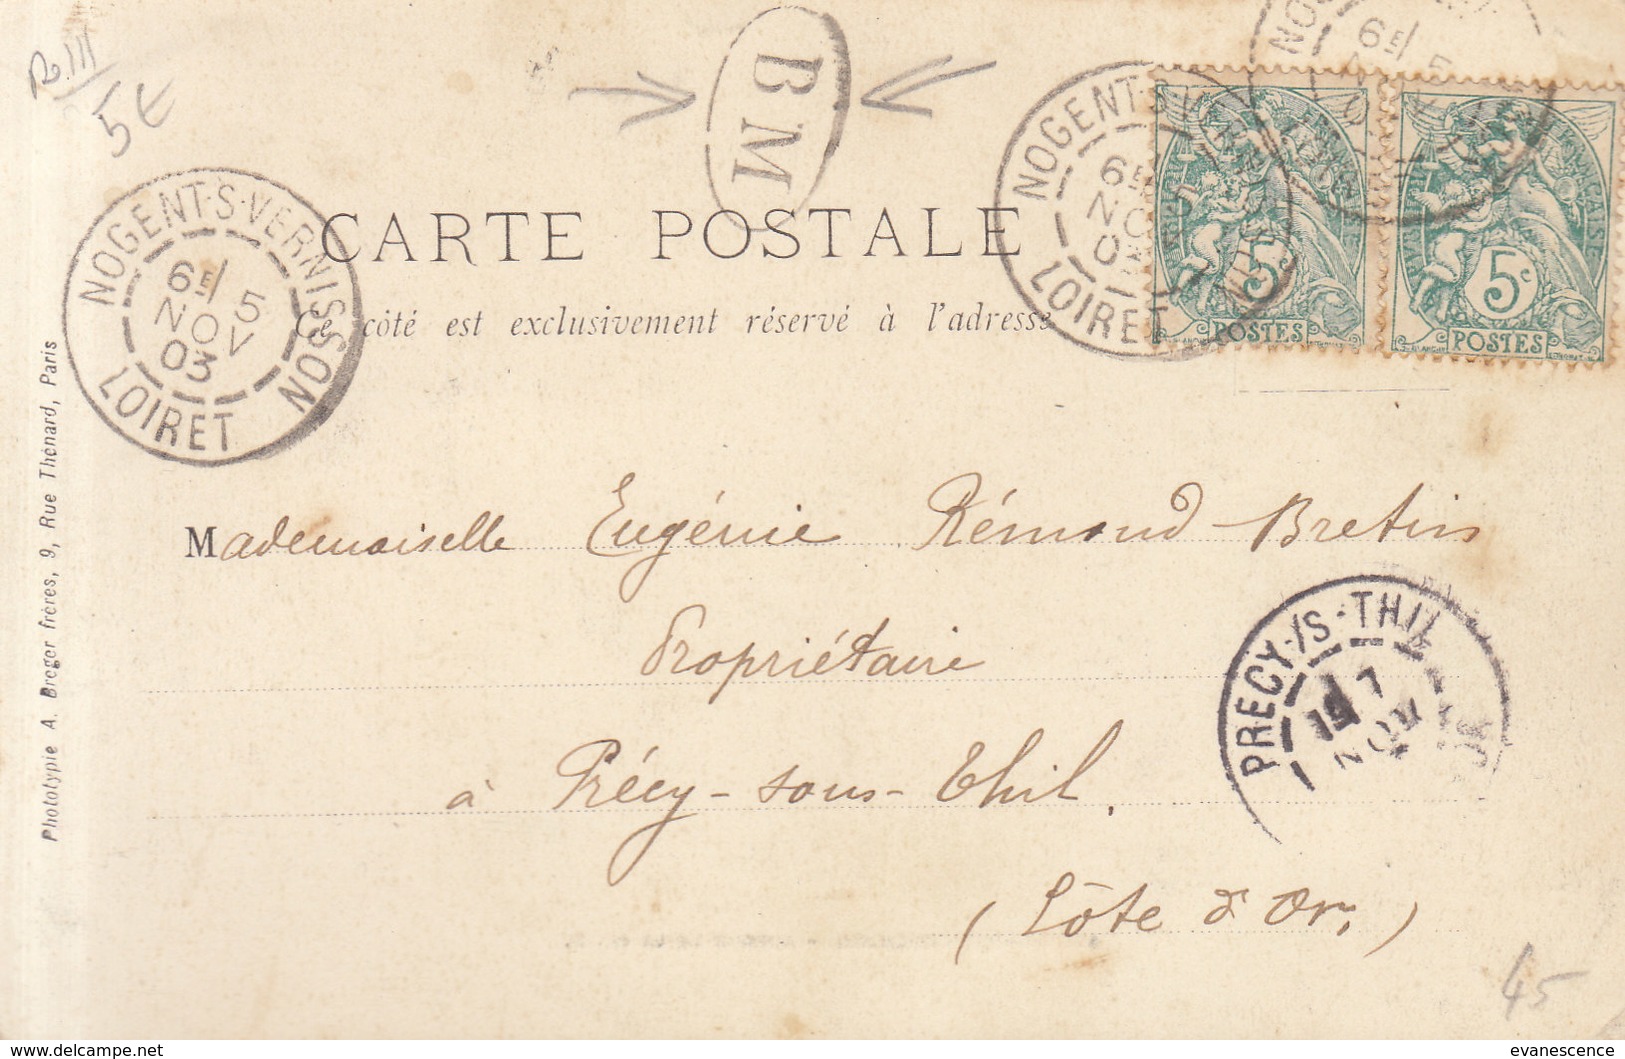 Ro.III
5€
BM
NOGENT-S-VERNISSON
6E 5
NOV
03
LOIRET
NOGENT-S-VERNISSON
6E 5
NO
0
LOIRET
NO
6E 5
CARTE POSTALE
Ce côté est exclusivement réservé à l'adresse
5c
POSTES
5c
POSTES
Phototypie A. Breger frères, 9, Rue Thénard, Paris
Mademoiselle Eugénie Rémond-Bretin
Propriétaire
à Précy-sous-Thil,
(Côte d'Or.)
PRECY-/S-THIL
7
NOV
45
evanescence